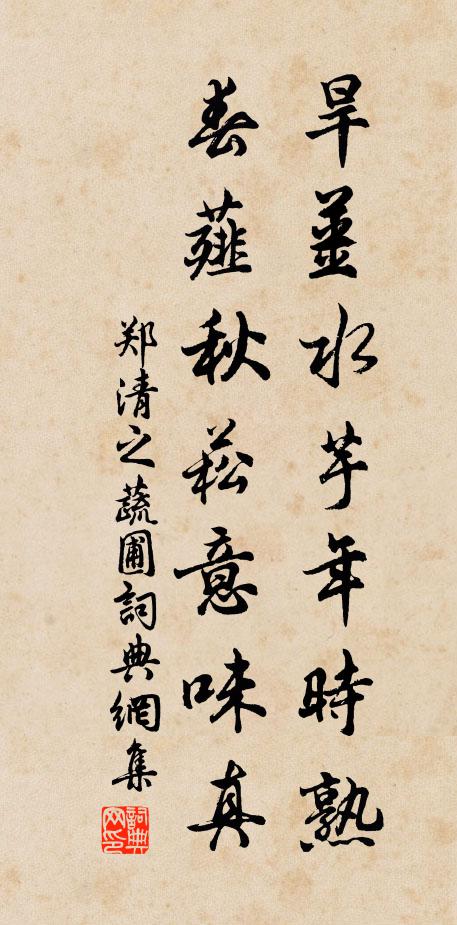 旱薑水芋年時熟
春薤秋菘意味真
郑清之蔬圃詞典網集
詞典网印